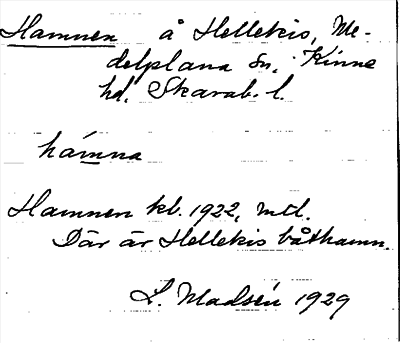 Hamnen å Hellekis, Me-
delplana sn, Kinne
hd, Skarab. l.
hámna
Hamnen kb. 1922, mtl.
Där är Hellekis båthamn.
L. Madsén 1929